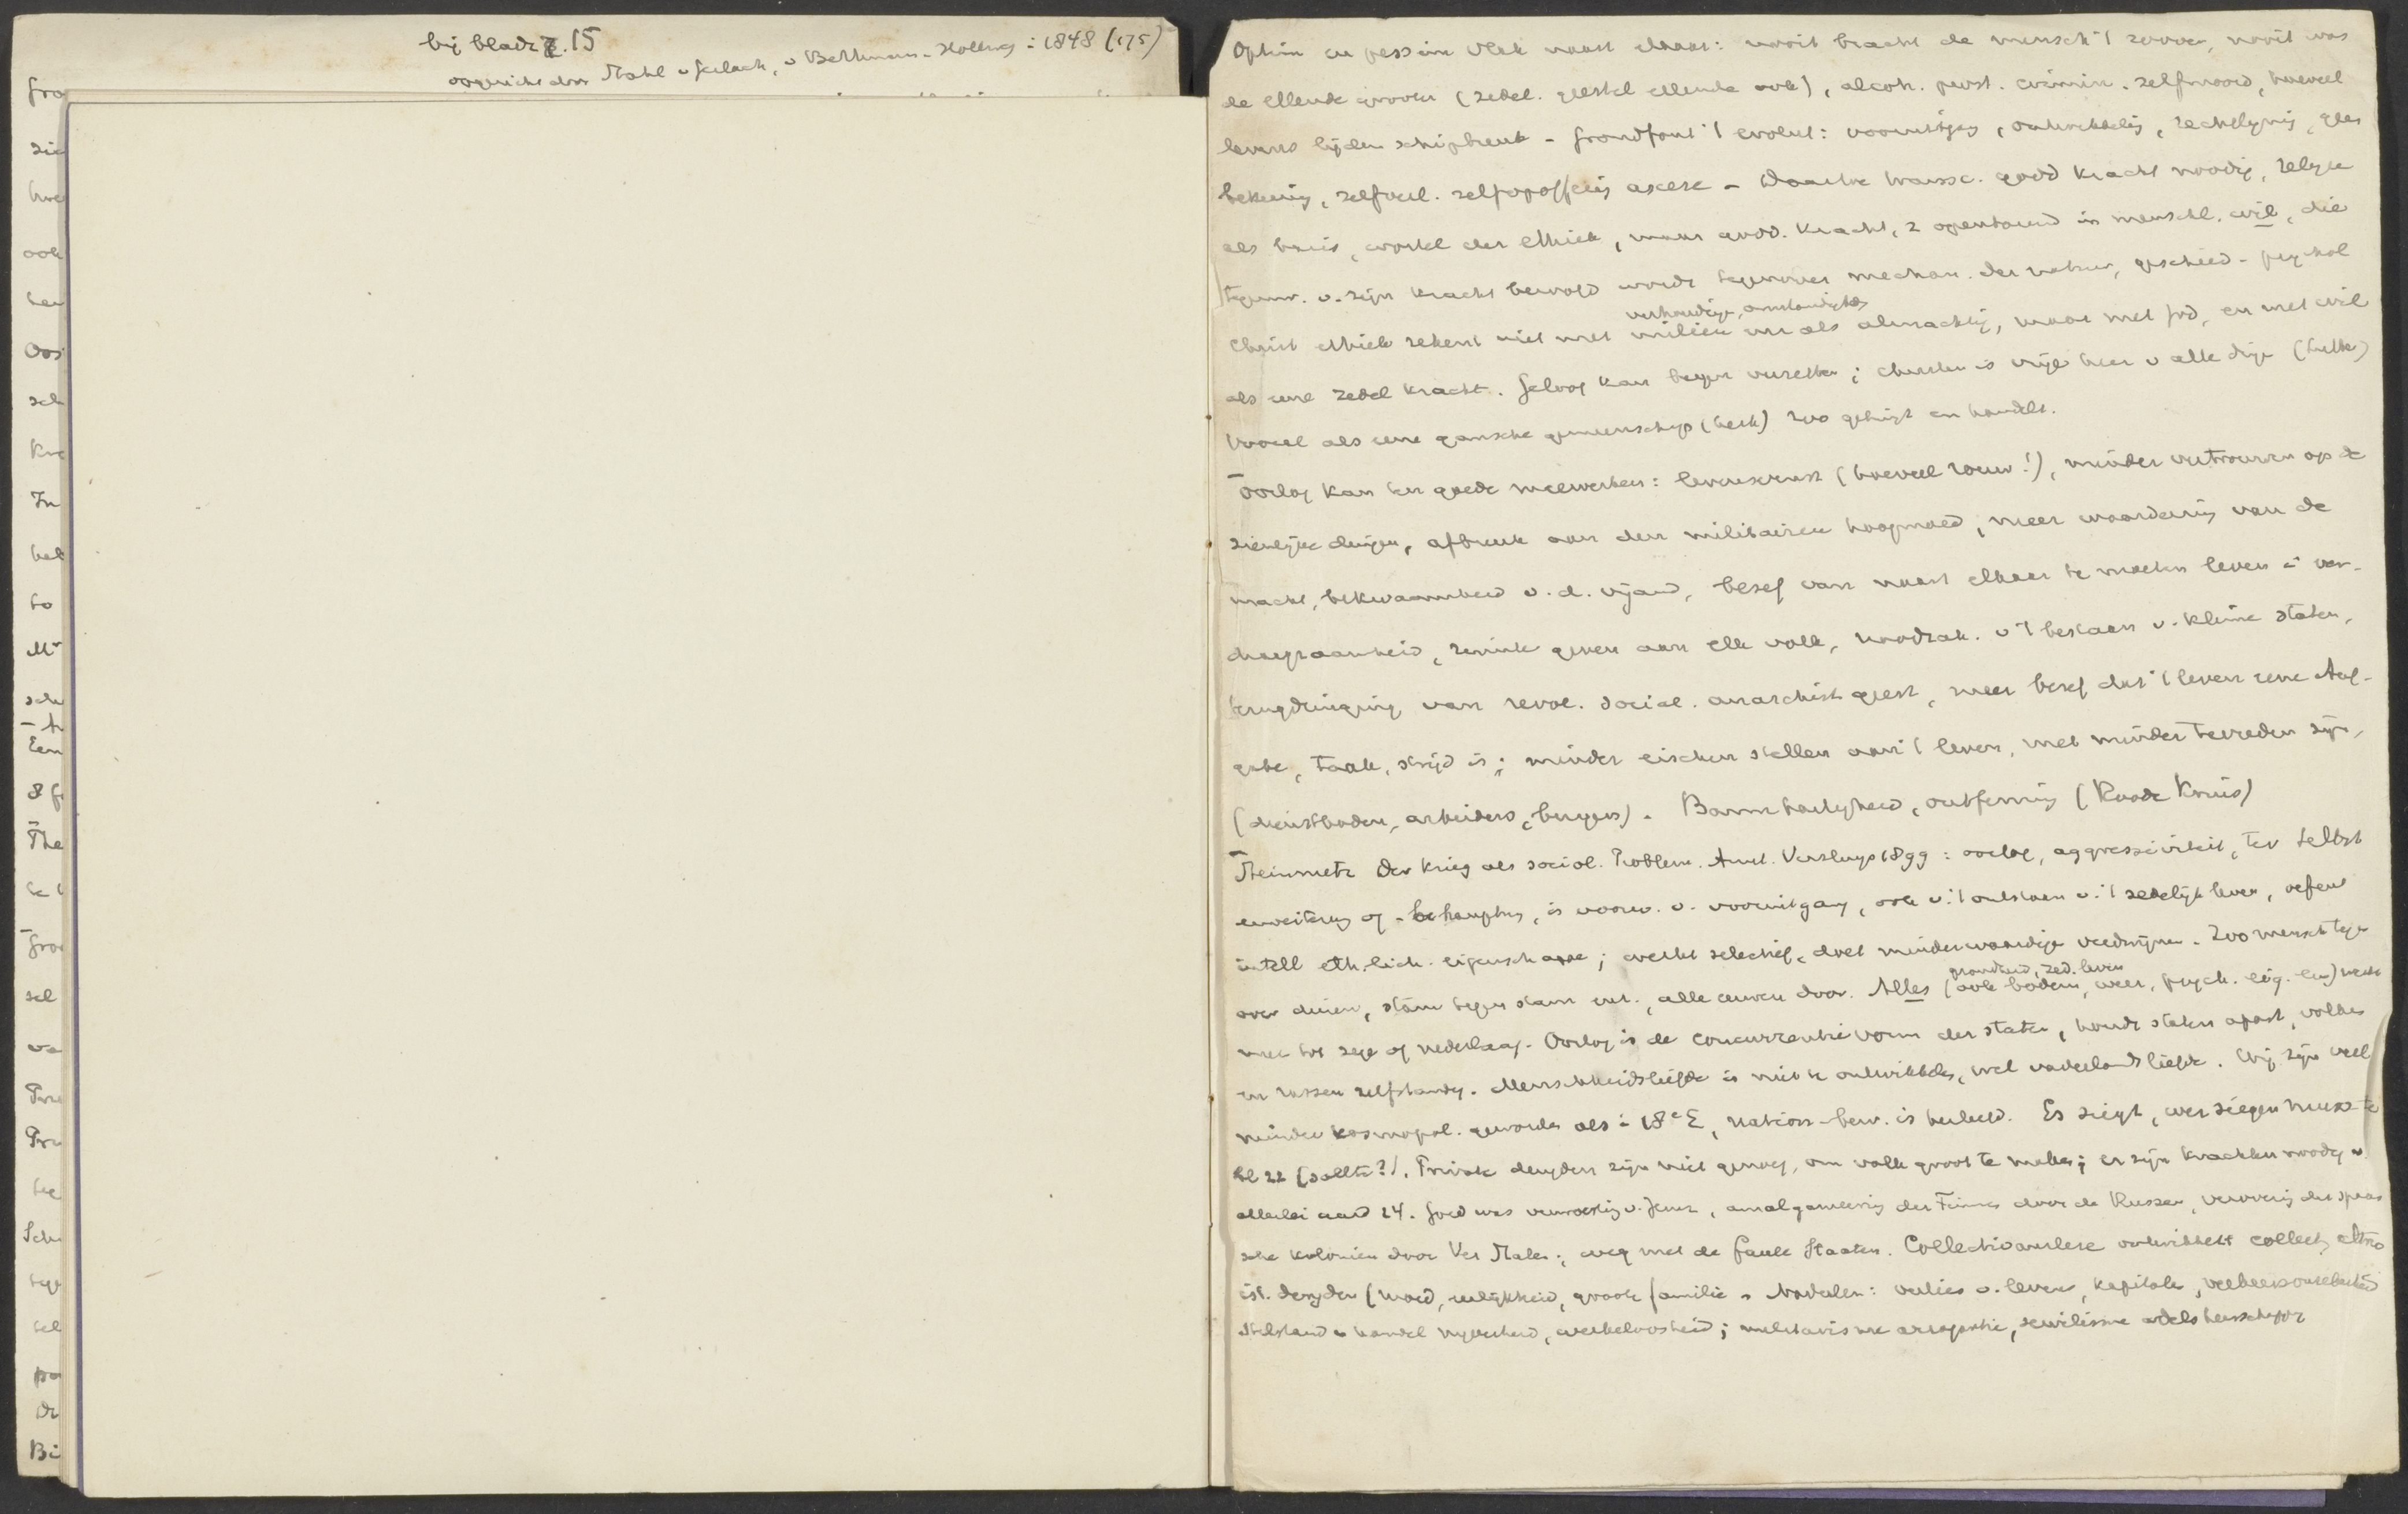 bij bladz. 15
opgericht door Stahl v Gerlach, v Bethmann-Hollweg i 1848 (175)
Gro
zie
hoe
ook
ten
Oos
sch
Kra
In
heb
to
Mi
sch
Een
8 G
The
te
Groo
sel
va
Pre
Pru
teg
Sch
tege
sel
po
Dr
Bi
Optim en pessim vlak naast elkaar: nooit bracht de mensch 't zoover, nooit was
de ellende grooter (zedel. geestel ellende ook), alcoh. prost. crimin. zelfmoord, hoeveel
levens lijden schipbreuk - Grondfout 't evolut: vooruitgang, ontwikkeling,
bekeering, zelfverl. zelfopoffering ascese - Daartoe transc. godd kracht noodig, religie
als basis, wortel der ethiek, maar godd. kracht, z openbarend in menschl. wil, die
tegenw. v. zijn kracht beroofd wordt tegenover mechan. der natuur, geschied - psychol
verhoudingen, omstandighed
Christ ethiek rekent niet met milieu enz als almachtig, maar met God, en met wil
als eene zedel kracht. Geloof kan bergen verzetten; christen is vrije heer v alle dinge (Luther)
Vooral als eene gansche gemeenschap (kerk) zoo getuigt en handelt.
Oorlog kan ten goede meewerken: levensernst (hoeveel rouw!), minder vertrouwen op de
zienlijke dingen, afbreuk aan den militairen hoogmoed, meer waardeering van de
macht, bekwaamheid v. d. vijand, besef van naast elkaar te moeten leven i ver-
draagzaamheid, ruimte geven aan elk volk, noodzak. v 't bestaan v. kleine staten,
terugdringing van revol. social. anarchist geest, meer besef dat 't leven eene Auf-
gabe, taak, strijd is; minder eischen stellen aan 't leven, met minder tevreden zijn,
(dienstboden, arbeiders, burgers). Barmhartigheid, ontferming (Roode Kruis)
Steinmetz Der Krieg als sociol. Problem. Amst. Versluys 1899: oorlog, aggressiviteit, ter Selbst
erweiterung of -behauptung, is voorw. v. vooruitgang, ook v. 't ontstaan v. 't zedelijk leven, oefent
intell eth. lich. eigenschappen; werkt selectief, doet minderwaardige verdwijnen. Zoo mensch tegen
grondheid, zed. leven
over dieren, stam tegen stam enz., alle eeuwen door. Alles (ook bodem, weer, psych. eig. enz) werkt
mee tot zege of nederlaag. Oorlog is de concurrentie vorm der staten, houdt staten apart, volken
en rassen zelfstandig. Menschheidsliefde is niet te ontwikkelen, wel vaderlandsliefde. Wij zijn veel
minder kosmopol. geworden als i 18e E, nation-bew. is herleefd. Es siegt, wer siegen musste
bl 22 (sollte?). Private deugden zijn niet genoeg, om volk groot te maken; er zijn krachten noodig v.
allerlei aard 24. Goed was verwoesting v. Jeruz, amalgameering der Finnen door de Russen, verovering der spaan
sche koloniën door Ver Staten; weg met de faule Staaten. Collectivauslese ontwikkelt collect, altruo
ist. deugden (moed, eerlijkheid, groote familie. Nadeelen: verlies v. levens, kapitalen,
stilstand v handel nijverheid, werkeloosheid; militarisme arrogantie, servilisme adelsheerschappij